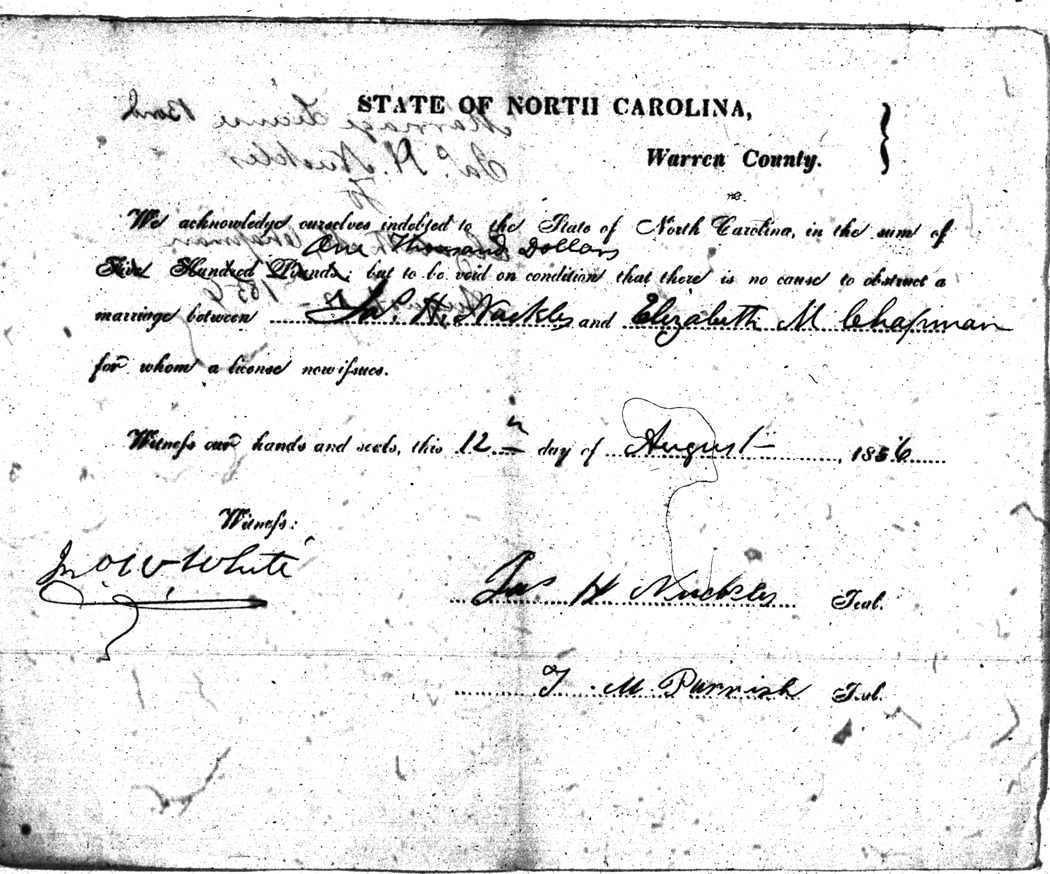 STATE OF NORTH CAROLINA,
Warren County.
We acknowledge ourselves indebted to the State of North Carolina, in the sum of
One Thousand Dollars
Five Hundred Pounds; but to be void on condition that there is no cause to obstruct a
marriage between Jas. H. Nuckles and Elizabeth M Chapman
for whom a license now issues.
Witness our hands and seals, this 12 day of August, 1856
Witness:
Jno W White
Jas H Nuckles Seal.
T. M Parrish Seal.